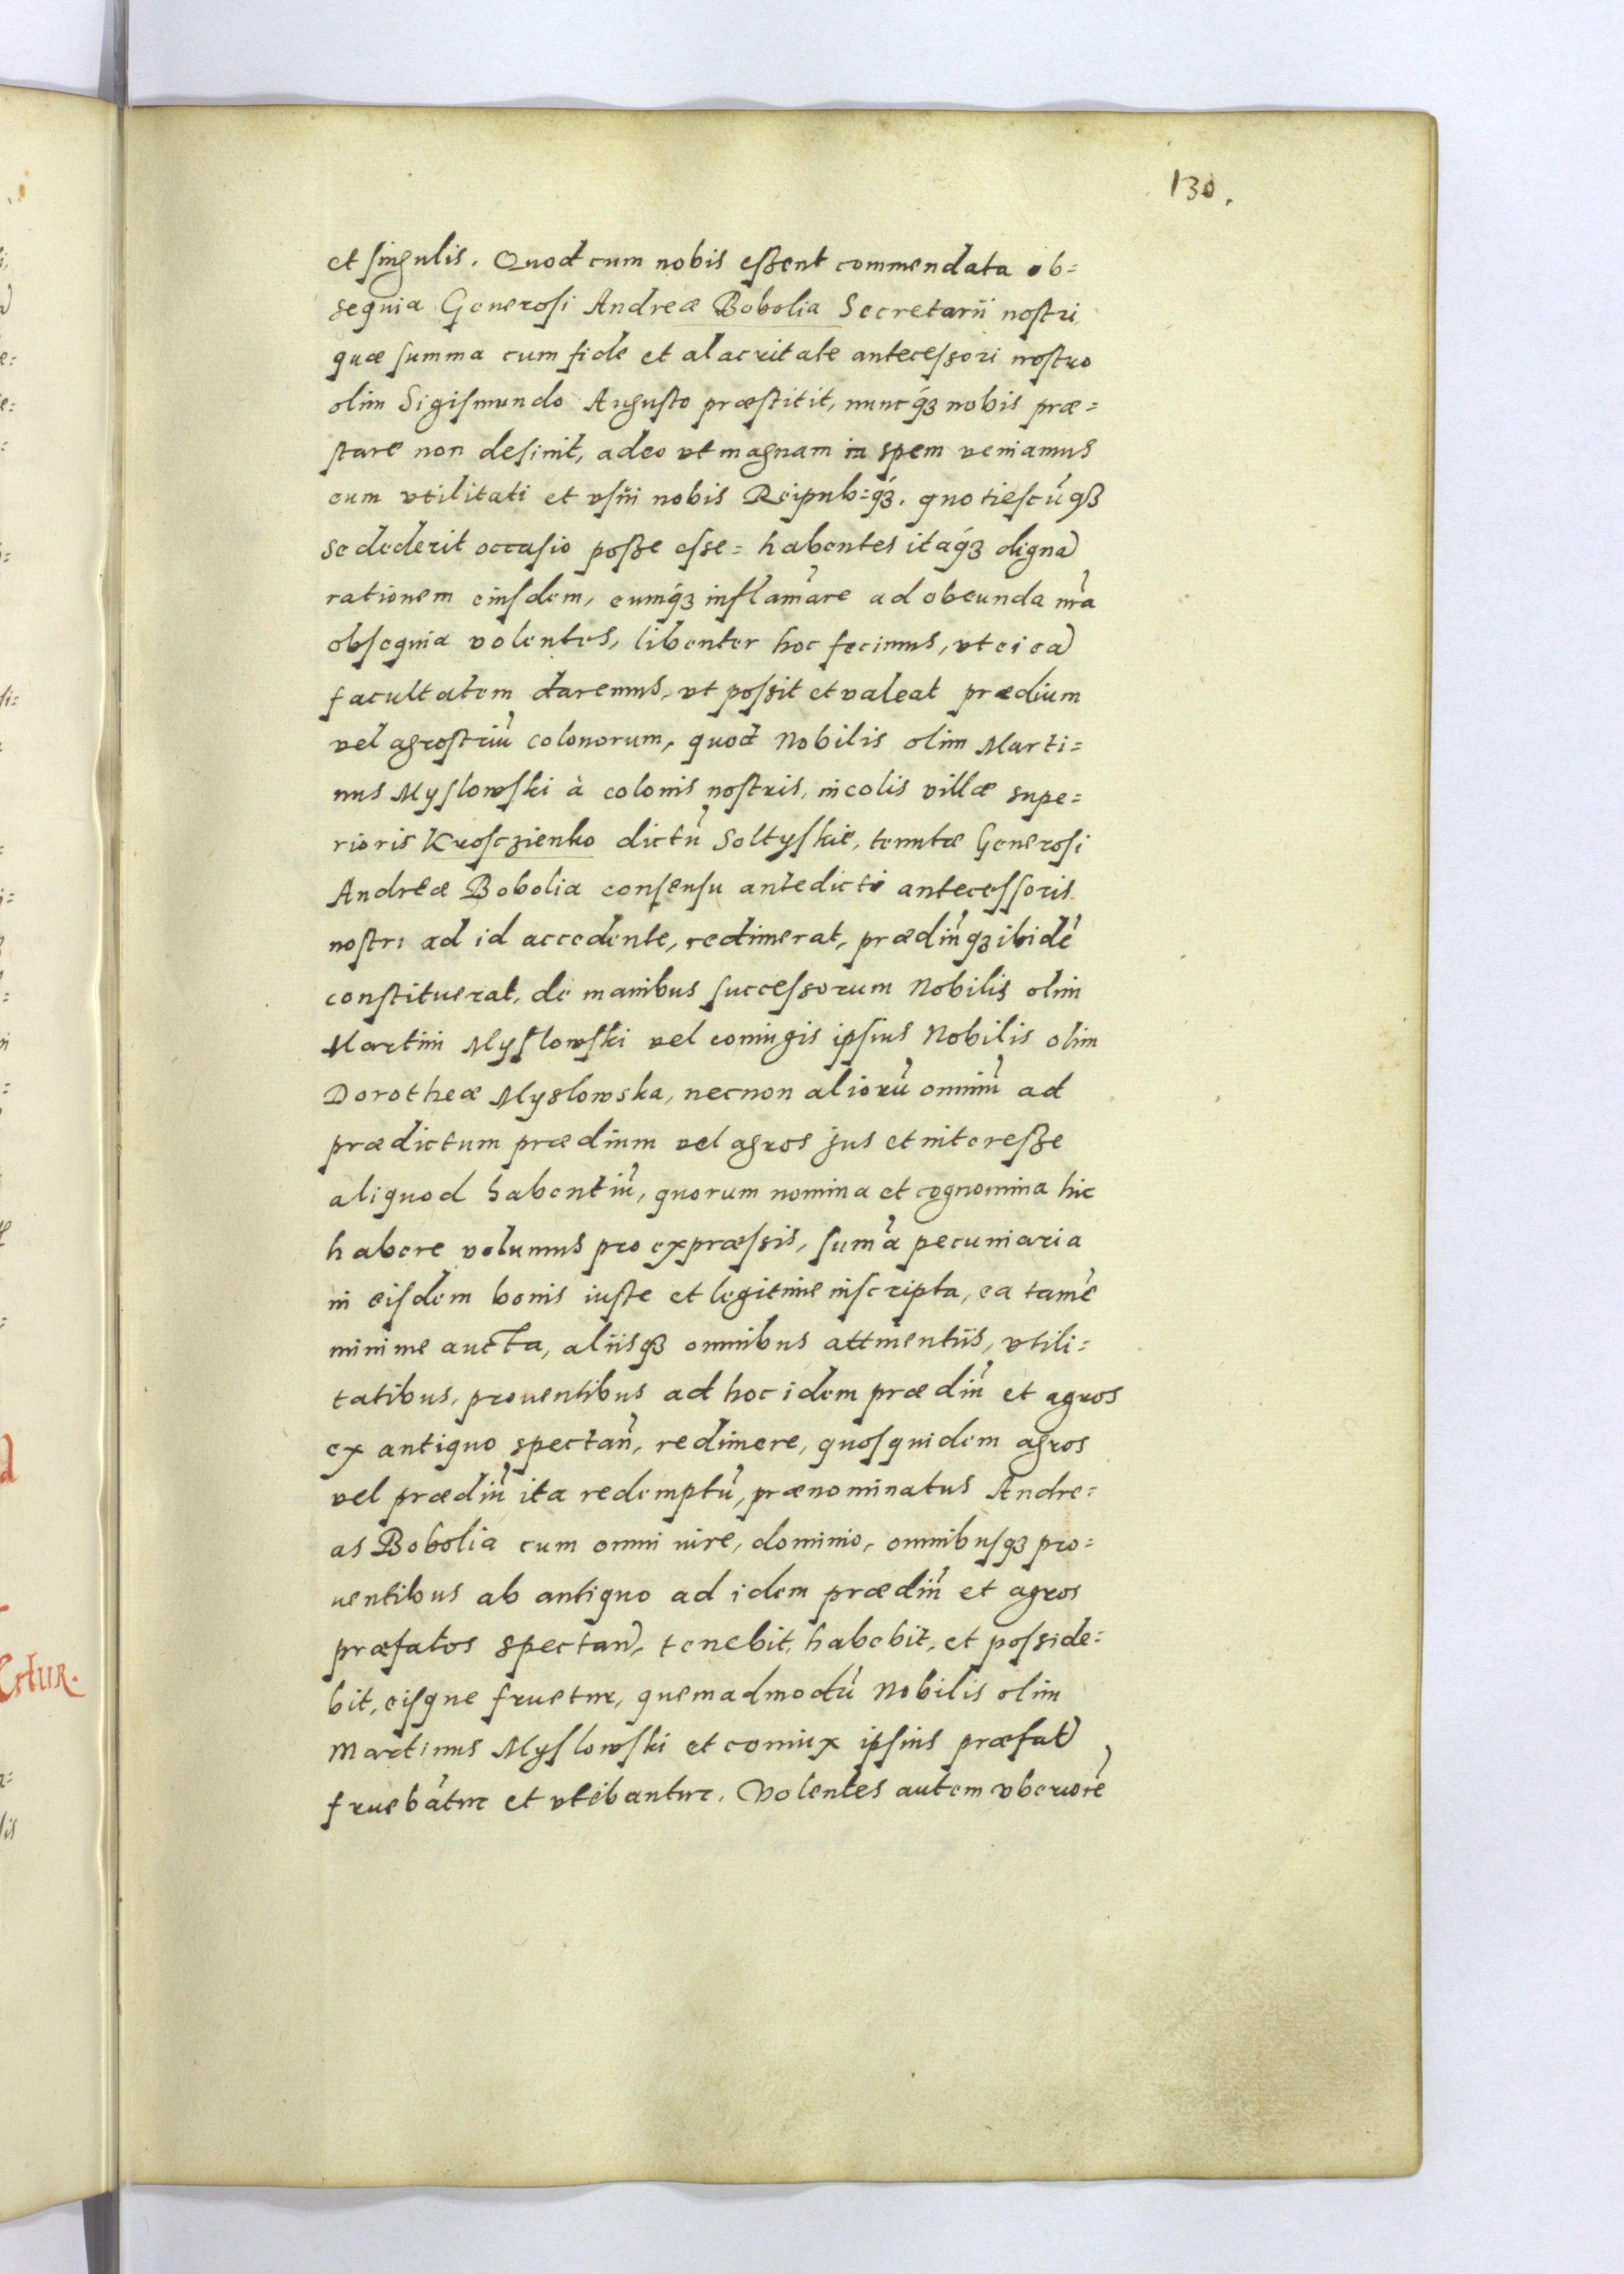 130.
et singulis. Quod cum nobis eßent commendata ob=
sequia Generosi Andreæ Bobolia Secretarii nostri
quæ summa cum fide et alacritate antecessori nostro
olim Sigismundo Augusto præstitit, nuncq́ꝫ nobis præ=
stare non desinit, adeo vt magnam in spem veniamus
eum vtilitati et vsui nobis Reipub=q́ꝫ. quotiescũqꝫ
se dederit occasio poße esse= habentes itaq́ꝫ dignã
rationem eiusdem, eumq́ꝫ inflam̃are ad obeunda nr̃a
obsequia volentes, libenter hoc fecimus, vt ei eã
facultatem daremus, vt possit et valeat prædium
vel agrostriũ colonorum, quod Nobilis olim Marti=
nus Myslowski à colonis nostris, incolis villæ supe=
rioris Krosczienko dictũ Soltyskie, tenutæ Generosi
Andreæ Bobolia consensu antedicti antecessoris
nostri ad id accedente, redimerat, prædiũqꝫ ibidẽ
constituerat, de manibus successorum Nobilis olim
Martini Myslowski vel coniugis ipsius Nobilis olim
Dorotheæ Myslowska, necnon aliorũ omniũ ad
prædictum prædium vel agros jus et intereße
aliquod habentiũ, quorum nomina et cognomina hic
habere volumus pro expræssis, sum̃a pecuniaria
in eisdem bonis iuste et legitime inscripta, ea tamẽ
minime aucta, aliisqꝫ omnibus attinentiis, vtili=
tatibus, prouentibus ad hoc idem prædiũ et agros
ex antiquo spectañ, redimere, quosquidem agros
vel prædiũ ita redemptũ, prænominatus Andre=
as Bobolia cum omni iure, dominio, omnibusqꝫ pro=
uentibus ab antiquo ad idem prædiũ et agros
præfatos spectañ, tenebit, habebit, et posside=
bit, eisque fruetur, quemadmodũ Nobilis olim
Martinus Myslowski et coniux ipsius præfat̃
fruebãtur et vtebantur. Volentes autem vberiorẽ